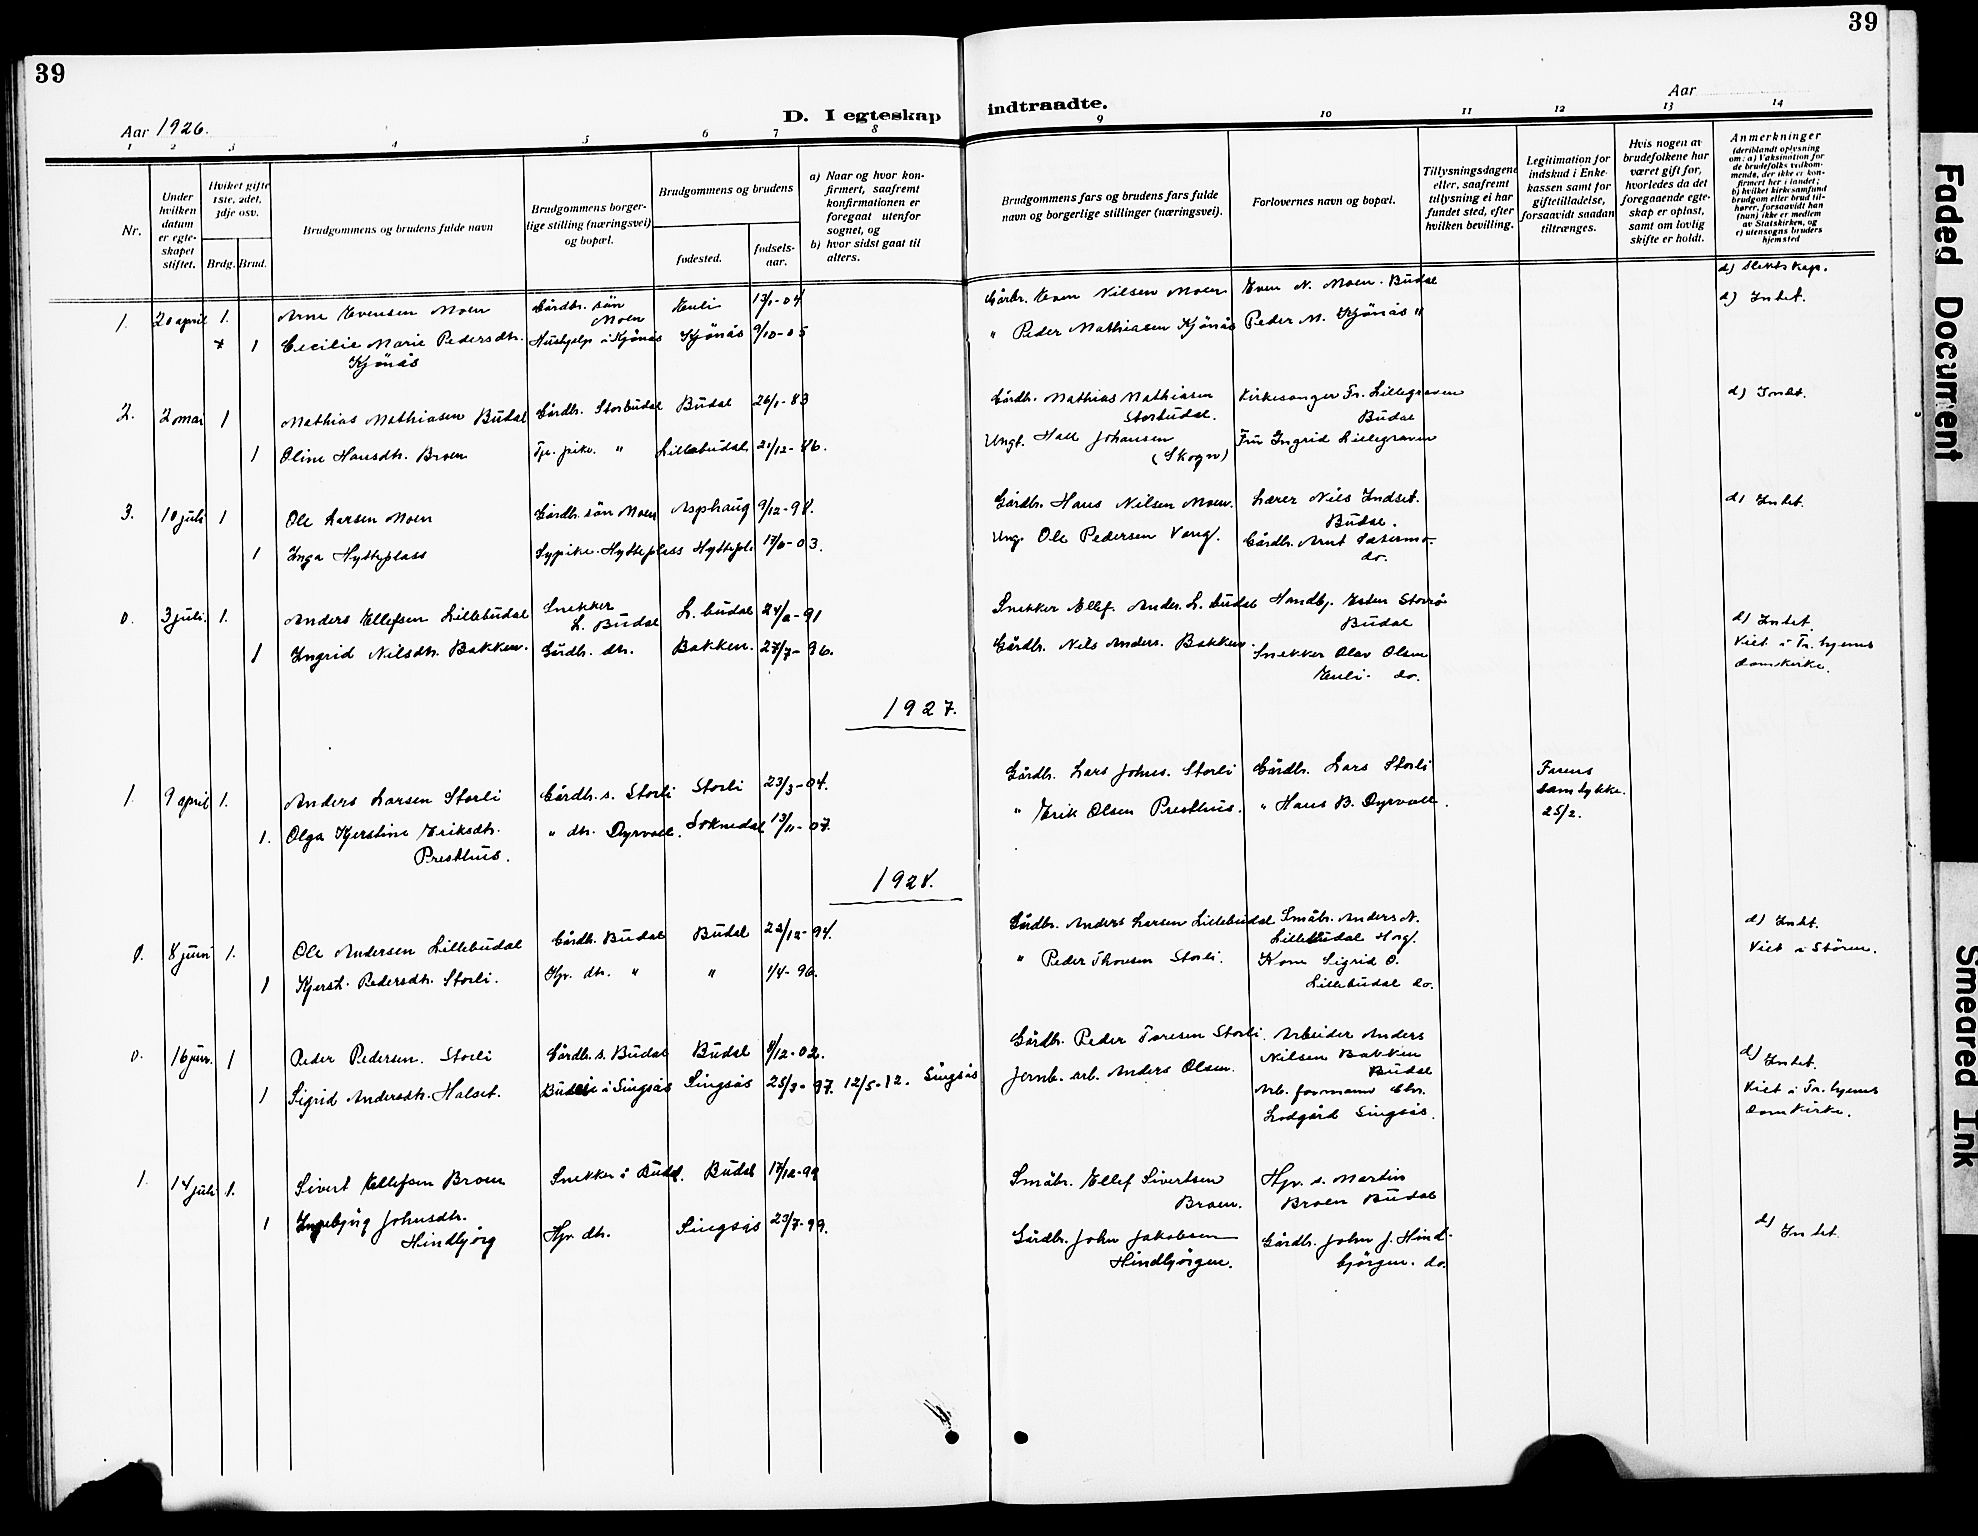 39
39
Aar 1926.
D. I egteskap indtraadte.
Aar
1 2 3 4 5 6 7 8 9 10 11 12 13 14
Nr.
Under hvilken datum er egteskapet stiftet.
Hvilket gifte 1ste, 2det, 3dje osv.
Brdg. Brud.
Brudgommens og brudens fulde navn
Brudgommens borgerlige stilling (næringsvei) og bopæl.
Brudgommens og brudens
fødested.
fødselsaar.
a) Naar og hvor konfirmert, saafremt konfirmationen er foregaat utenfor sognet, og
b) hvor sidst gaat til alters.
Brudgommens fars og brudens fars fulde navn og borgerlige stillinger (næringsvei).
Forlovernes navn og bopæl.
Tillysningsdagene eller, saafremt tillysning ei har fundet sted, efter hvilken bevilling.
Legitimation for indskud i Enkekassen samt for giftetilladelse, forsaavidt saadan tiltrænges.
Hvis nogen av brudefolkene har været gift før, hvorledes da det foregaaende egteskap er opløst, samt om lovlig skifte er holdt.
Anmerkninger
(deriblandt oplysning om: a) Vaksination for de brudefolks vedkommende, der ikke er konfirmert her i landet; b) hvilket kirkesamfund brudgom eller brud tilhører, forsaavidt han (hun) ikke er medlem av Statskirken, og c) utensogns bruders hjemsted
d) Slektskap.
1. 20 april 1. Arne Evensen Moen Gårdbr. søn Moen Enli 17/1-04 Gårbr. Even Nilsen Moen Even N. Moen. Budal d) Intet.
1 Cecilie Marie Pedersdtr. Kjönås Hushjelp i Kjönås Kjönås 9/10-05 " Peder Mathiasen Kjönås Peder M. Kjönås "
2. 2 mai 1 Mathias Mathiasen Budal Gårdbr. Storbudal Budal 26/1-83 Gårdbr. Mathias Mathiasen Storbudal. Kirkesanger Fr. Lillegraven Budal d) Intet.
1 Oline Hansdtr. Broen Tj. pike. " Lillebudal 21/12-86. Ungk. Hall Johansen (Skogn) Fru Ingrid Lillegraven
3. 10 juli 1 Ole Larsen Moen Gårdbr. søn Moen Asphaug 9/12-98. Gårdbr. Hans Nilsen Moen. Lærer Nils Indset. Budal. d) Intet.
1 Inga Hytteplass Sypike. Hytteplass Hyttepl. 17/6-03. Ung. Ole Pedersen Vang. Gårdbr. Arnt Sætermo do.
0. 3 juli. 1. Anders Ellefsen Lillebudal Snekker L. Budal L. budal 24/2-91 Snekker Ellef. Anders. L. budal Handlsj. Esten Storrö Budal d) Intet.
1 Ingrid Nilsdtr. Bakken. Gårdbr. dtr. Bakken. 27/7-96. Gårdbr. Nils Anders. Bakken. Snekker Olav Olsen Enli. do. Viet i Tr.hjems Domkirke.
1927.
1 9 april 1. Anders Larsen Storli Gårdbr. s. Storli Storli 23/3-04. Gårdbr. Lars Johns. Storli Gårdbr. Lars Storli Farens samtykke. 25/2.
1. Olga Kjerstine Eriksdtr. Presthus. " dtr. Dyrvoll. Soknedal 13/11-07. " Erik Olsen Presthus. " Hans B. Dyrvoll.
1928.
0. 8 juni 1. Ole Andersen Lillebudal Gårdb. Budal Budal 22/12-94. Gårdbr. Anders Larsen Lillebudal Småbr. Anders N. Lillebudal Horg. d) Intet.
1 Kjerst. Pedersdtr. Storli. Hjv. dtr. " " 1/4-96. " Peder Thoresen Storli. Kone Sigrid O. Lillebudal do. Viet i Støren.
0. 16 jun. 1 Peder Pedersen. Storli Gårdbr. s. Budal Budal 8/12-02. Gårdbr. Peder Toresen Storli. Arbeider Anders Nilsen Bakken Budal d) Intet.
1 Sigrid Andersdtr. Halset. Budeie i Singsås Singsås 25/3-97. 12/5-12. Singsås Jernb. arb. Anders Olsen. Arb. formann Chr. Lodgård Singsås. Viet i Tr.hjems Domkirke.
1. 14 juli 1. Sivert Ellefsen Broen Snekker i Budal. Budal 17/12-99 Småbr. Ellef Sivertsen Broen. Hjv. s. Martin Broen Budal
1 Ingebjørg Johnsdtr. Hindbjørg Hjv. dtr. Singsås 23/7-99. Gårdbr. John Jakobsen Hindbjørgen. Gårdbr. John J. Hindbjørgen. do. d) Intet.
Faded Document
Smeared Ink